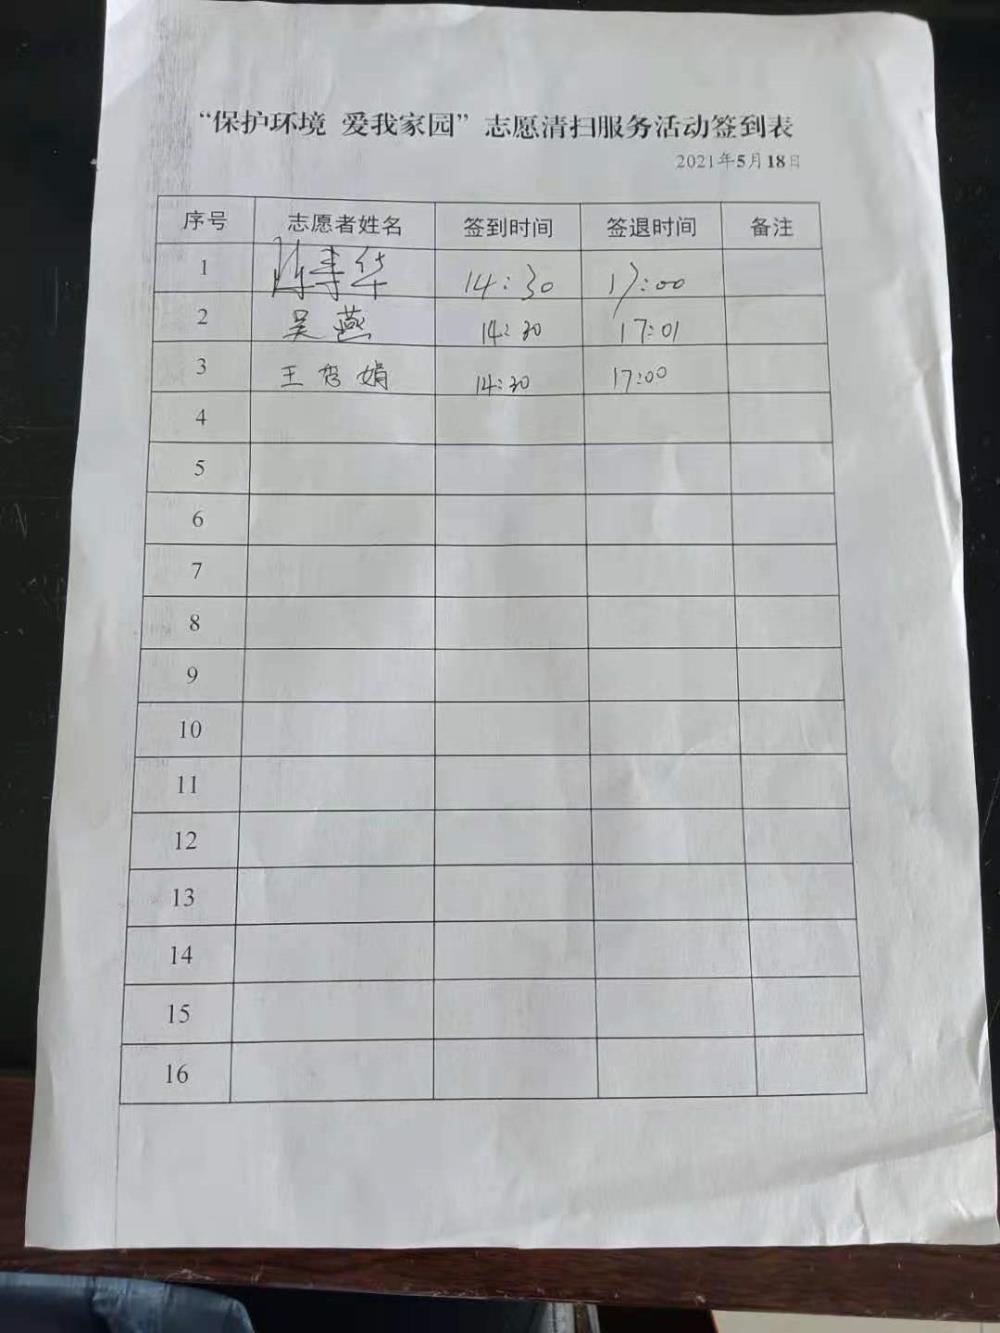 “保护环境 爱我家园”志愿清扫服务活动签到表
2021年5月18日
序号 志愿者姓名 签到时间 签退时间 备注
1 华 14:30 17:00
2 吴燕 14:30 17:01
3 王 娟 14:30 17:00
4
5
6
7
8
9
10
11
12
13
14
15
16